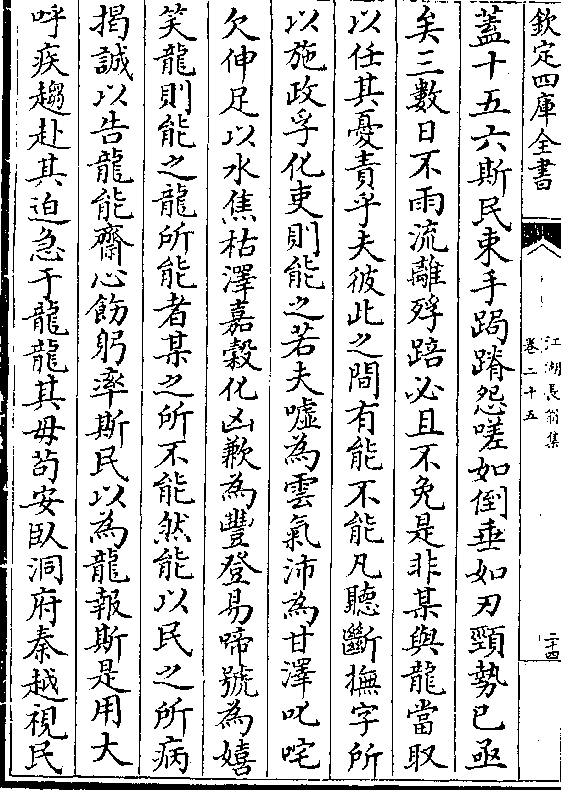 欽定四庫全書
江湖長翁集
卷二十五
二十四
蓋十五六斯民束手跼蹐怨嗟如倒垂如刃頸勢已亟
矣三數日不雨流離殍踣必且不免是非某與龍當取
以任其憂責乎夫彼此之間有能不能凡聽斷撫字所
以施政孚化吏則能之若夫嘘為雲氣沛為甘澤叱咤
欠伸足以水焦枯澤嘉穀化凶歉為豐登易啼號為嬉
笑龍則能之龍所能者某之所不能然能以民之所病
掲誠以告龍能齋心飭躬率斯民以為龍報斯是用大
呼疾趨赴其迫急于龍龍其毋苟安臥洞府秦越視民